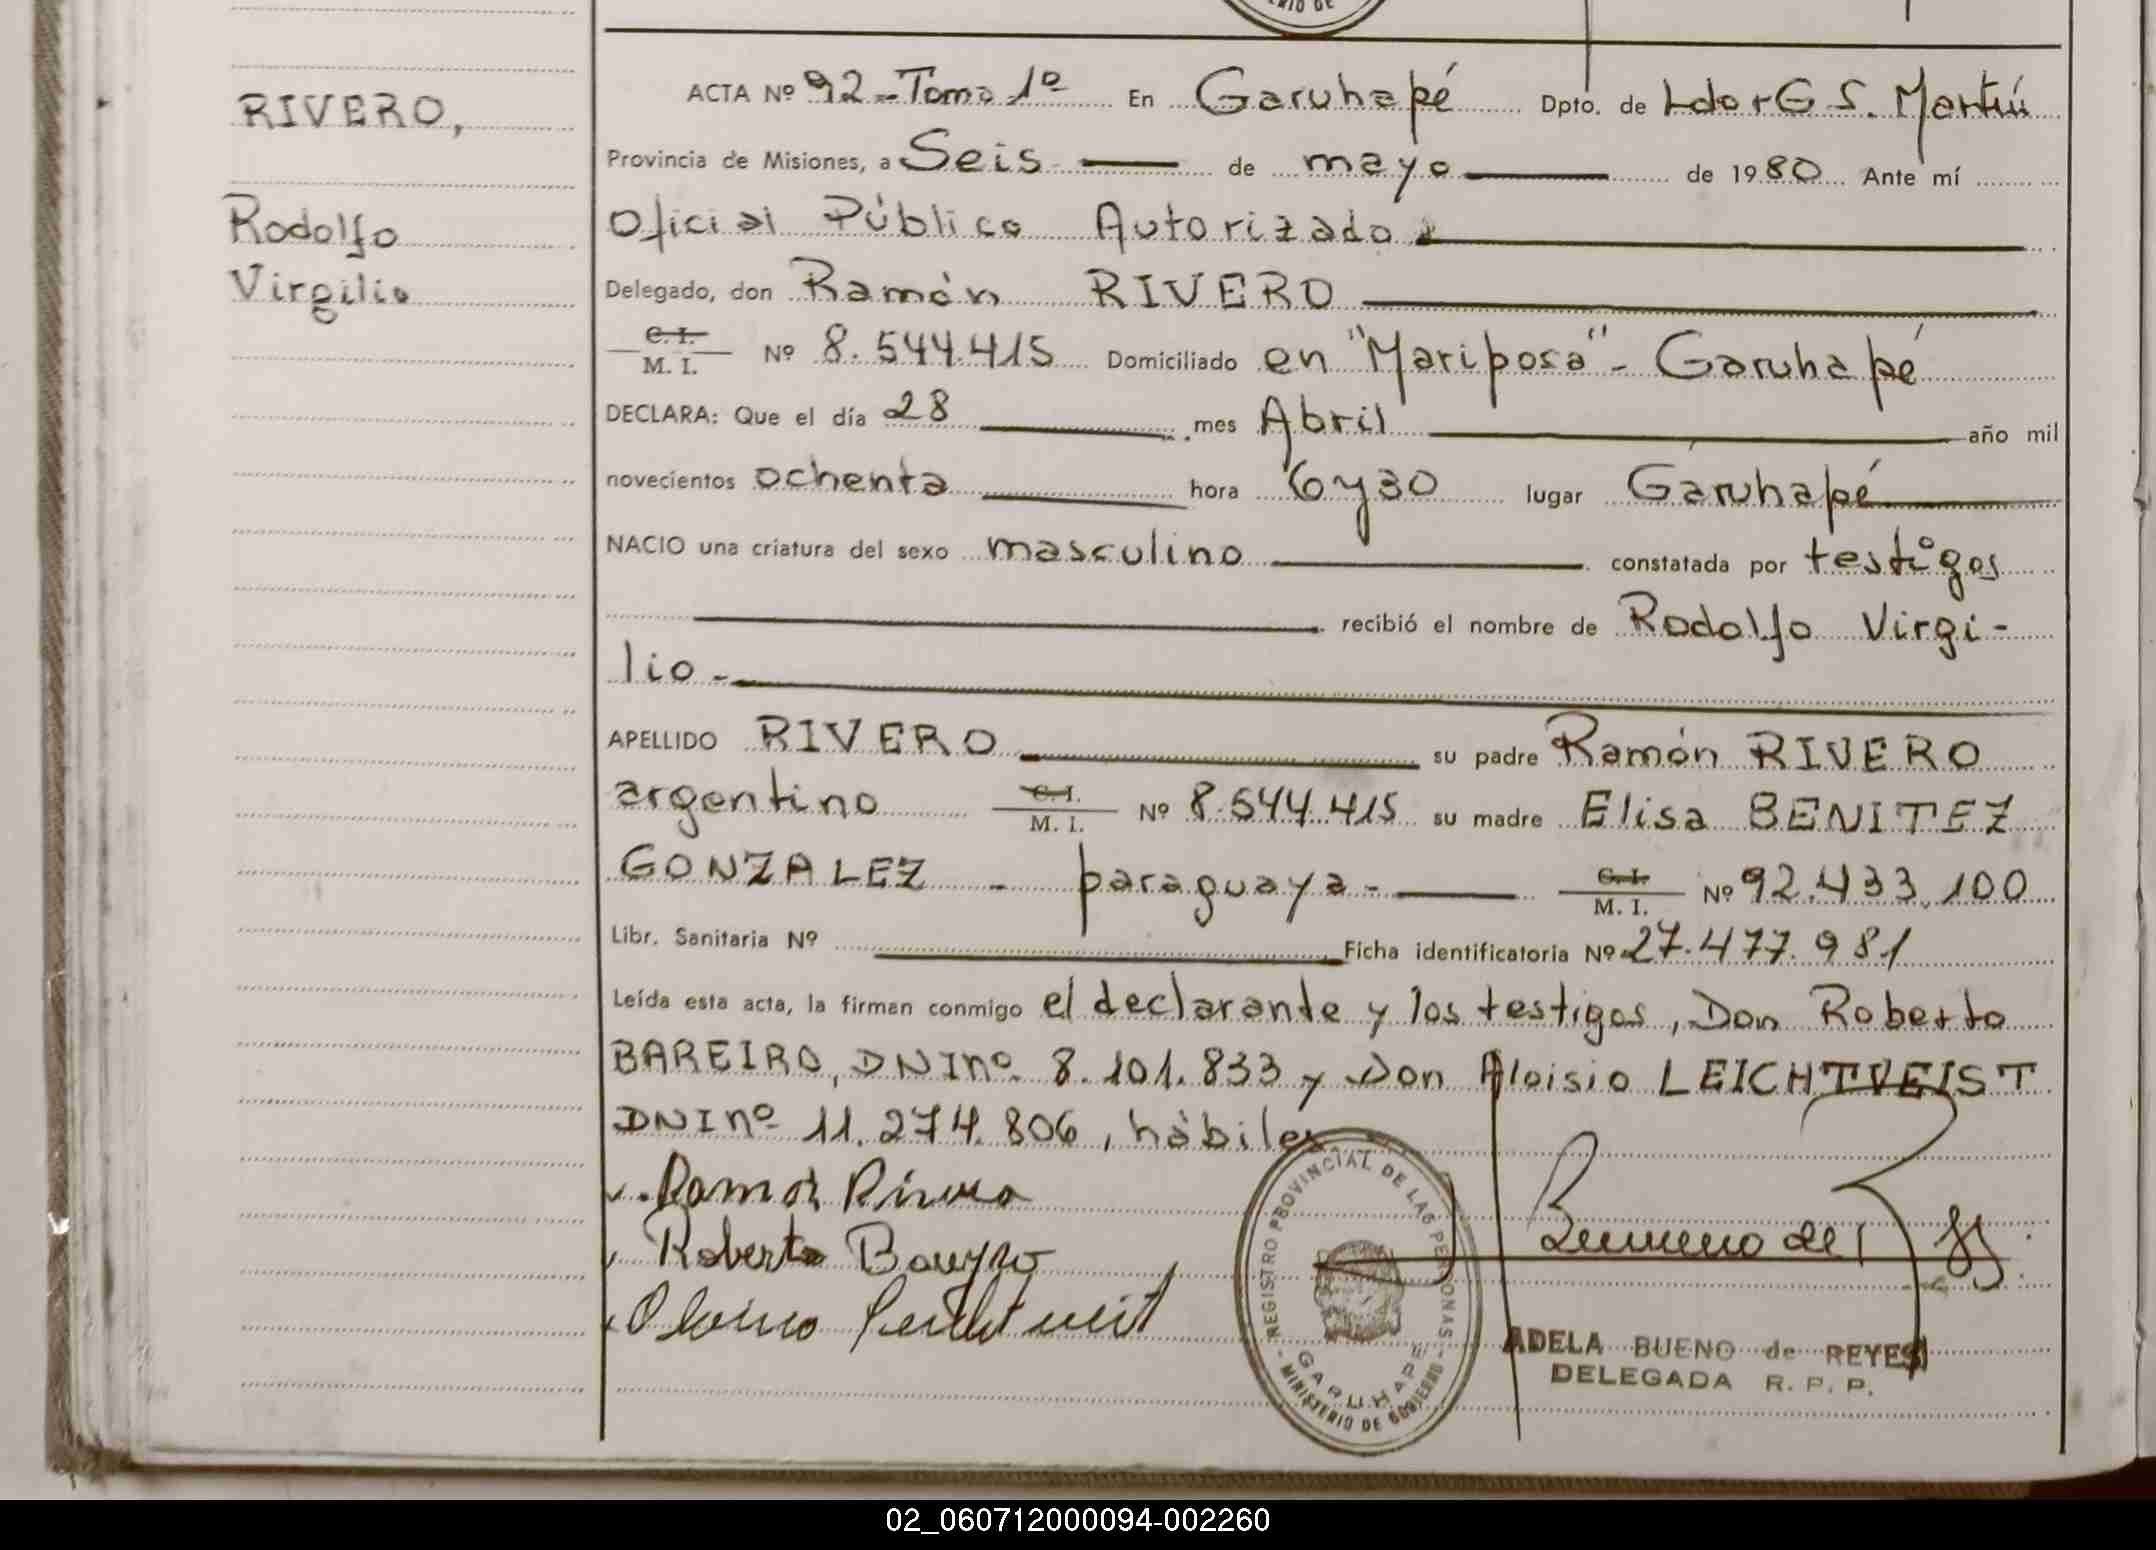 RIO DE
RIVERO,
Rodolfo
Virgilio
ACTA Nº 92 - Tomo 1º En Garuhapé Dpto. de Ldor G S. Martín
Provincia de Misiones, a Seis de mayo de 1980 Ante mí
Oficial Público Autorizado
Delegado, don Ramón RIVERO
C. I.
M. I. Nº 8.544.415 Domiciliado en "Mariposa" - Garuhapé
DECLARA: Que el día 28 mes Abril año mil
novecientos ochenta hora 6 y 30 lugar Garuhapé
NACIO una criatura del sexo masculino constatada por testigos
recibió el nombre de Rodolfo Virgi-
lio -
APELLIDO RIVERO su padre Ramón RIVERO
argentino C. I. M. I. Nº 8.544.415 su madre Elisa BENITEZ
GONZALEZ - paraguaya - C. I. M. I. Nº 92.433.100
Libr. Sanitaria Nº Ficha identificatoria Nº 27.477.981
Leída esta acta, la firman conmigo el declarante y los testigos, Don Roberto
BAREIRO, DNI nº 8.101.833 y Don Aloisio LEICHTVEIST
DNI nº 11.274.806, hábiles
Ramon Rivero
Roberto Bareyro
REGISTRO PROVINCIAL DE LAS PERSONAS
GARUHAPE
MINISTERIO DE GOBIERNO
ADELA BUENO de REYES
DELEGADA R. P. P.
02_060712000094-002260